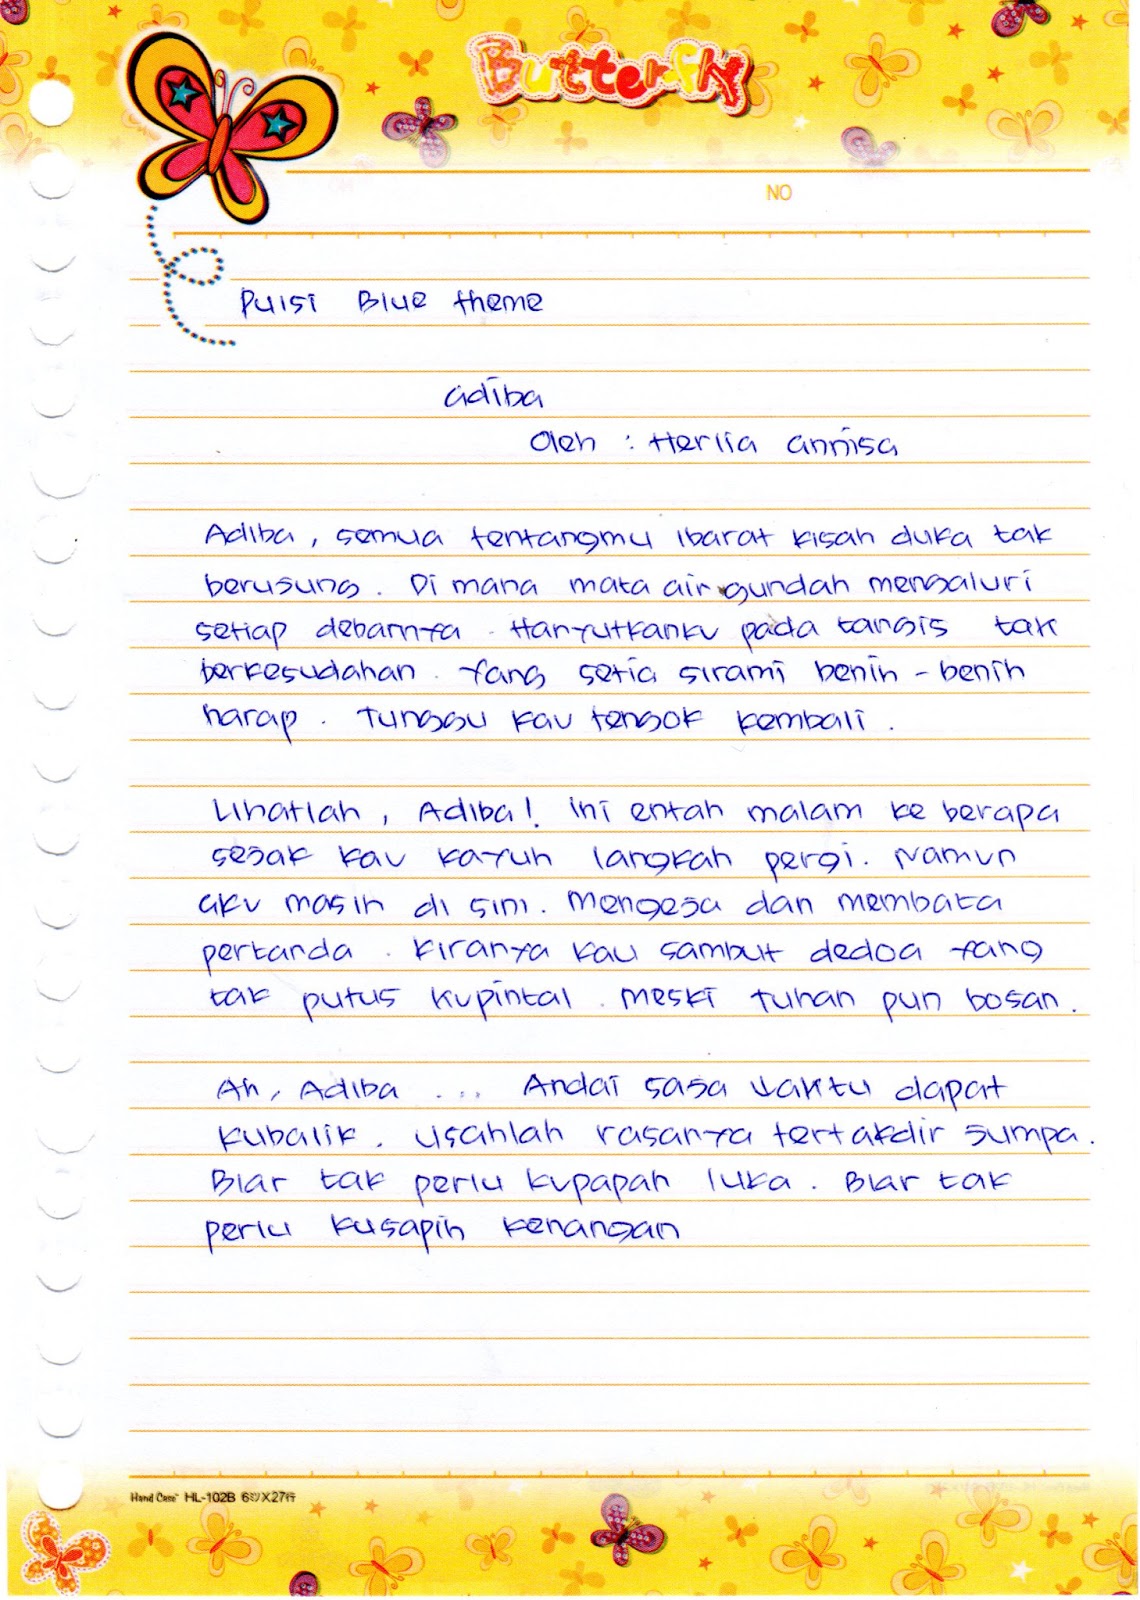 Butterfly
NO
Puisi Blue theme
Adiba
Oleh : Herlia annisa
Adiba, semua tentangmu ibarat kisah duka tak
berusung. Di mana mata air gundah mengaluri
setiap debarnya. Hanyutkanku pada tangis tak
berkesudahan. Yang setia sirami benih-benih
harap. Tunggu kau tengok kembali.
Lihatlah, Adiba! ini entah malam ke berapa
sejak kau kayuh langkah pergi. Namun
aku masih di sini. Mengeja dan membaca
pertanda. Kiranya kau sambut dedoa yang
tak putus kupintal. Meski Tuhan pun bosan.
Ah, Adiba ... Andai saja waktu dapat
kubalik. Usahlah rasanya tertakdir jumpa.
Biar tak perlu kupapah luka. Biar tak
perlu kusapih kenangan
Hand Case HL-102B 6号X27行